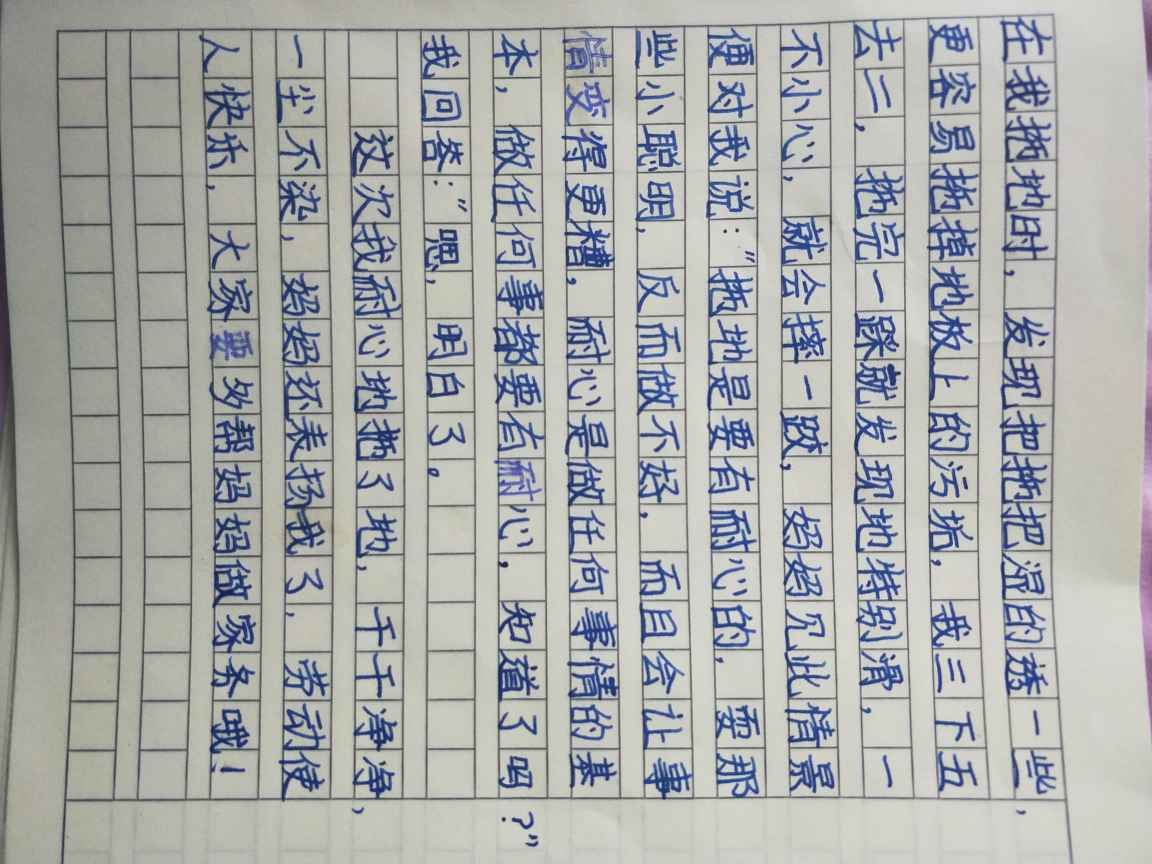 在我拖地时，发现把拖把湿的透一些，
更容易拖掉地板上的污垢，我三下五
去二，拖完一踩就发现地特别滑，一
不小心，就会摔一跤，妈妈见此情景
便对我说：“拖地是要有耐心的，耍那
些小聪明，反而做不好，而且会让事
情变得更糟，耐心是做任何事情的基
本，做任何事都要有耐心，知道了吗？”
我回答：“嗯，明白了。
这次我耐心地拖了地，干干净净，
一尘不染，妈妈还表扬我了，劳动使
人快乐，大家要多帮妈妈做家务哦！